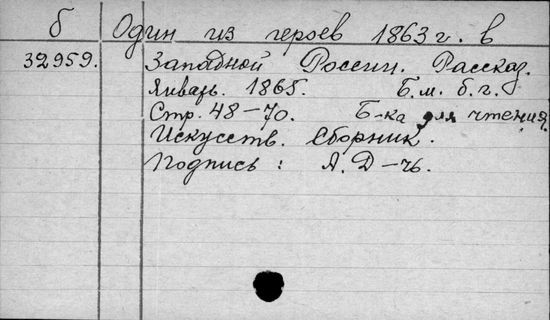 б Один из героев 1863 г. в
32959. Западной России. Рассказ.
Январь. 1865. Б.м. б.г.
Стр. 48-70. Б-ка для чтения.
Искусств. сборник.
Подпись: А. Д-ч.